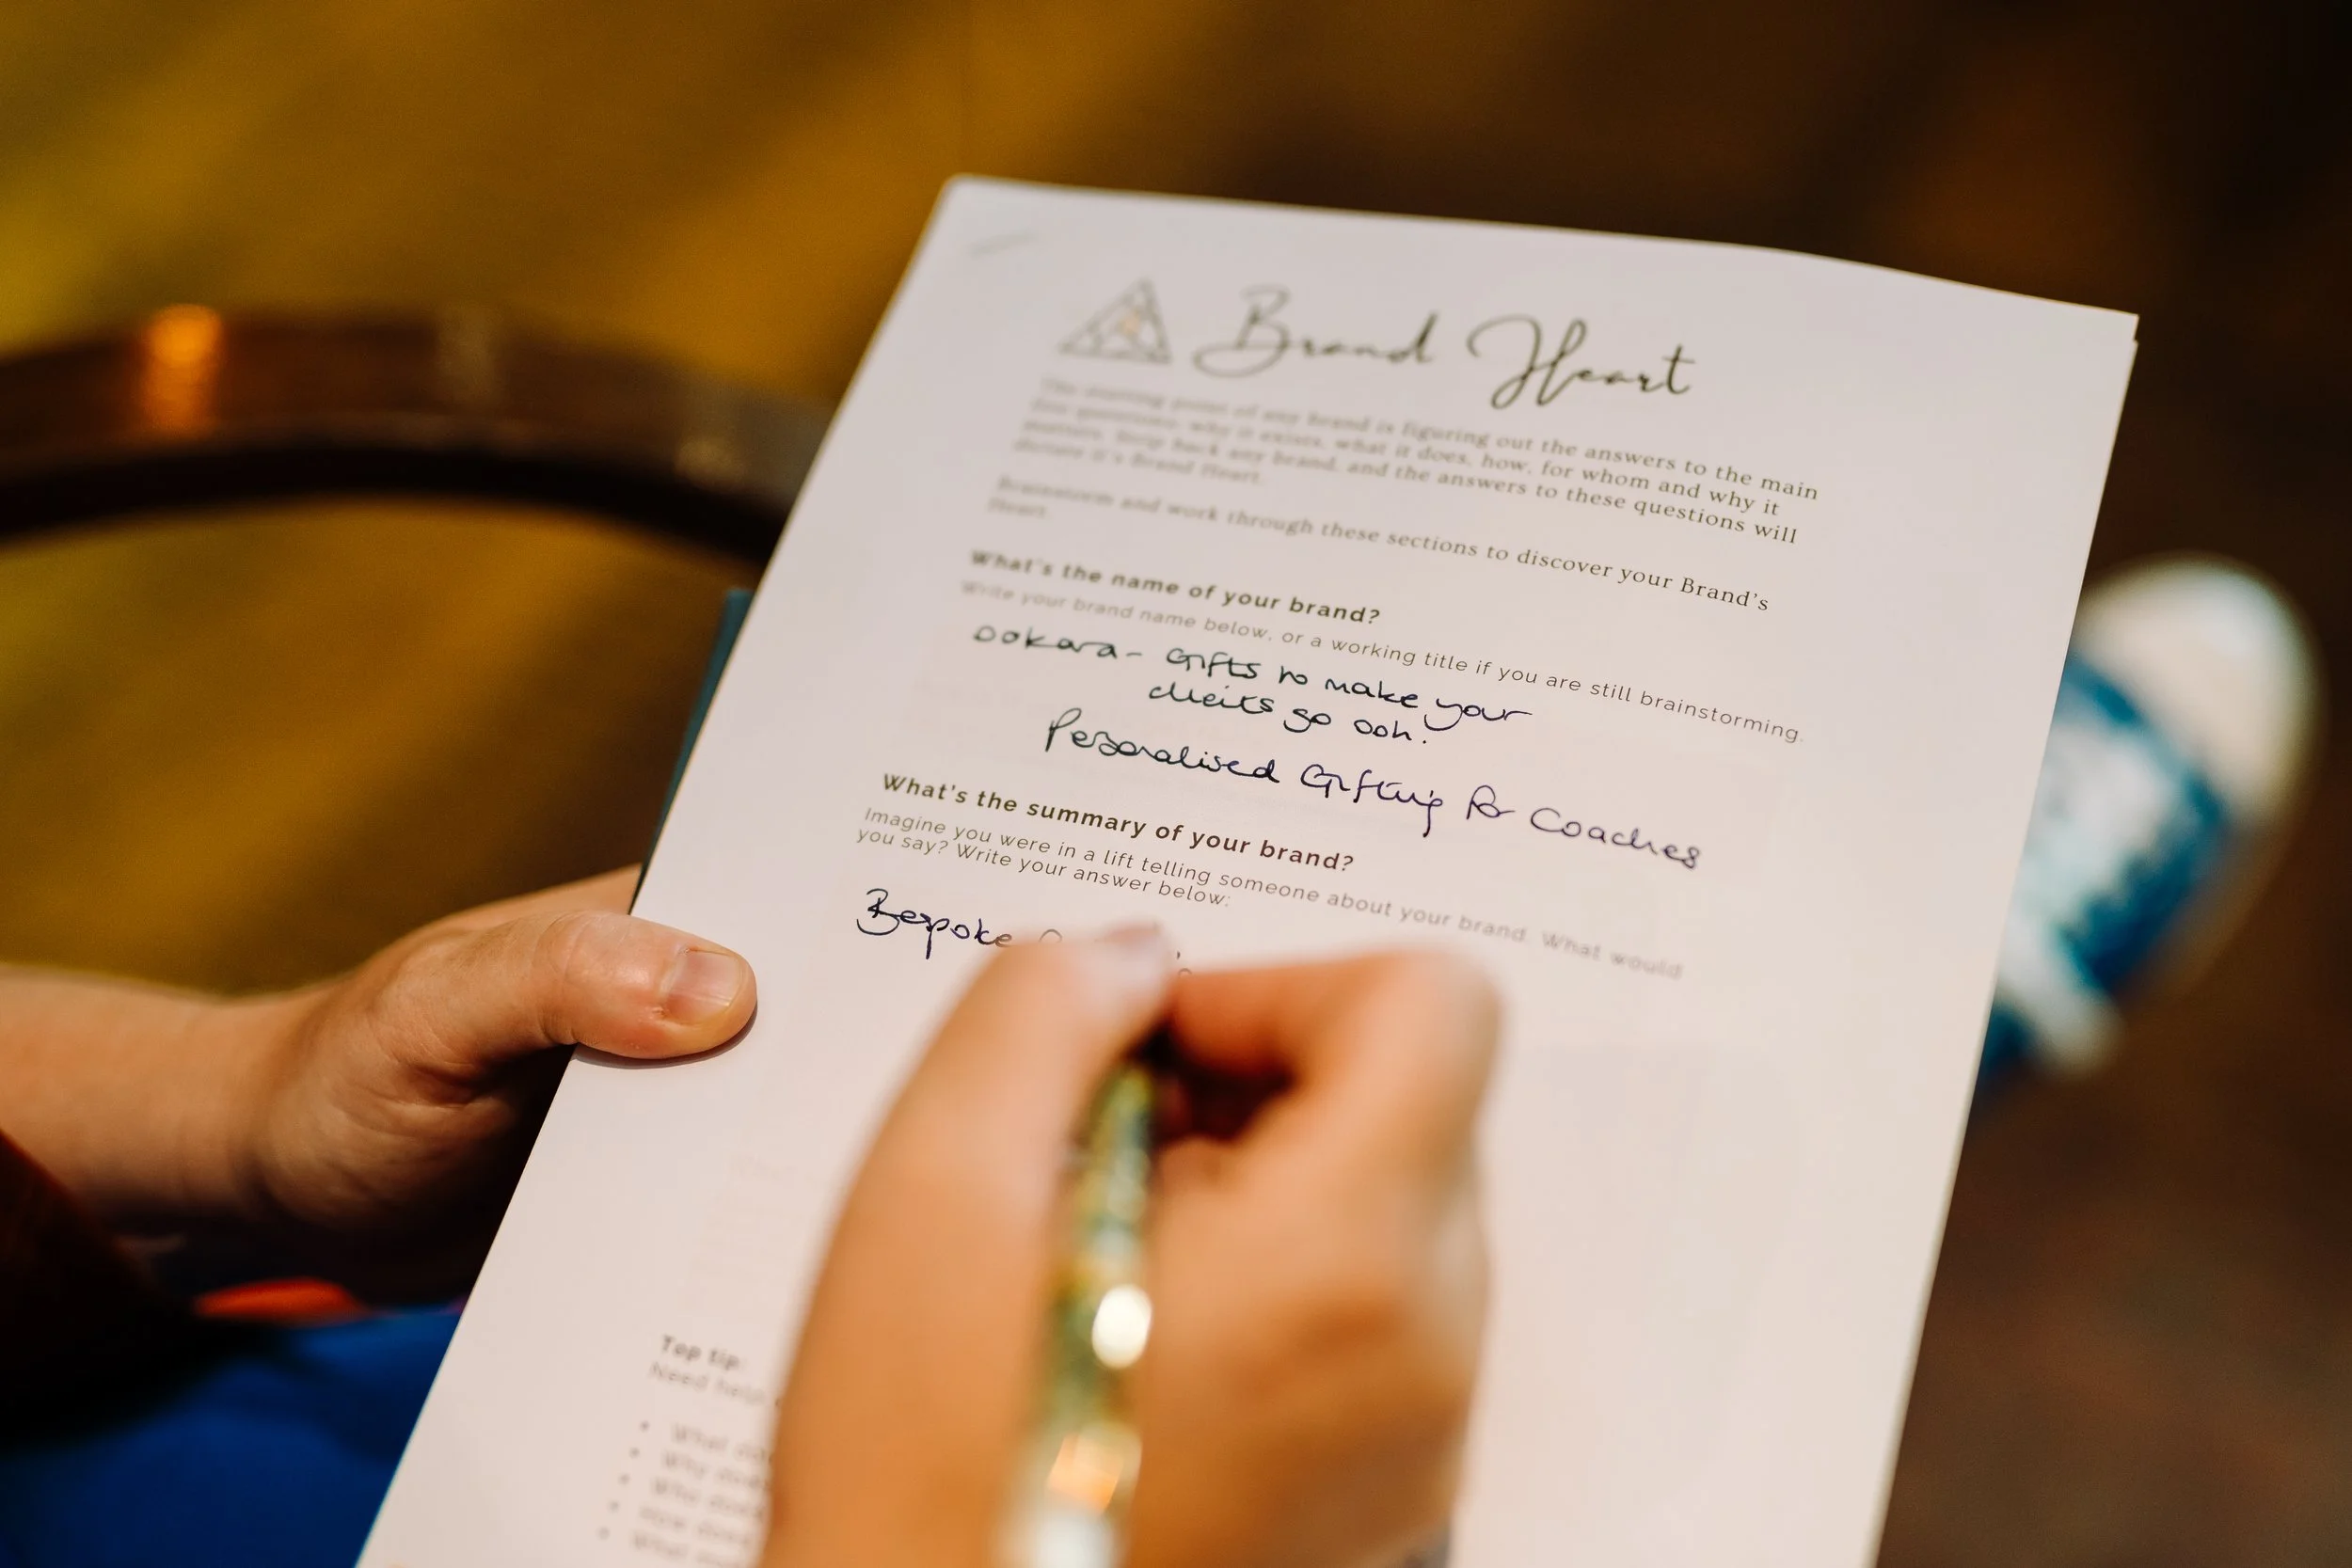 Brand Heart
The starting point of any brand is figuring out the answers to the main
few questions; why it exists, what it does, how, for whom and why it
matters. Strip back any brand, and the answers to these questions will
dictate it's Brand Heart.
Brainstorm and work through these sections to discover your Brand's
Heart.
What's the name of your brand?
Write your brand name below, or a working title if you are still brainstorming.
Ookara - Gifts to make your
clients go ooh!
Pesonalised Gifting for Coaches
What's the summary of your brand?
Imagine you were in a lift telling someone about your brand. What would
you say? Write your answer below:
Bespoke
Top tip:
Need help
What
Why does
Who does
How does
What